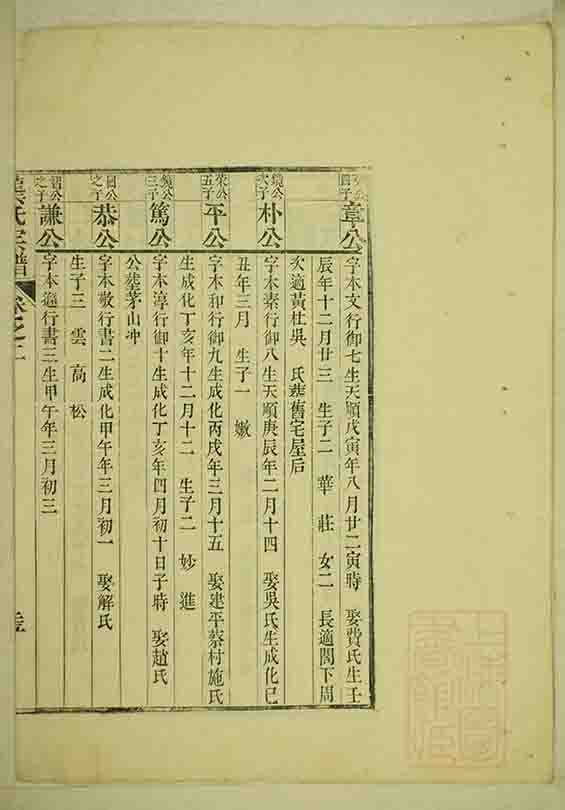 公四子
章公
字本文行御七生天順戊寅年八月廿二寅時 娶費氏生壬
辰年十二月廿三 生子二 華 莊 女二 長適閣下周
次適黃杜吳 氏葬舊宅屋后
鏡公次子
朴公
字本素行御八生天順庚辰年二月十四 娶吳氏生成化己
丑年三月 生子一 嫩
來公五子
平公
字本和行御九生成化丙戌年三月十五 娶建平蔡村施氏
生成化丁亥年十二月十二 生子二 妙 進
鏡公三子
篤公
字本淳行御十生成化丁亥年四月初十日子時 娶趙氏
公葬茅山冲
公之子
恭公
字本敬行書二生成化甲午年三月初一 娶解氏
生子三 雲 高 松
公之子
謙公
字本遜行書三生甲午年三月初三
氏宗譜 卷之